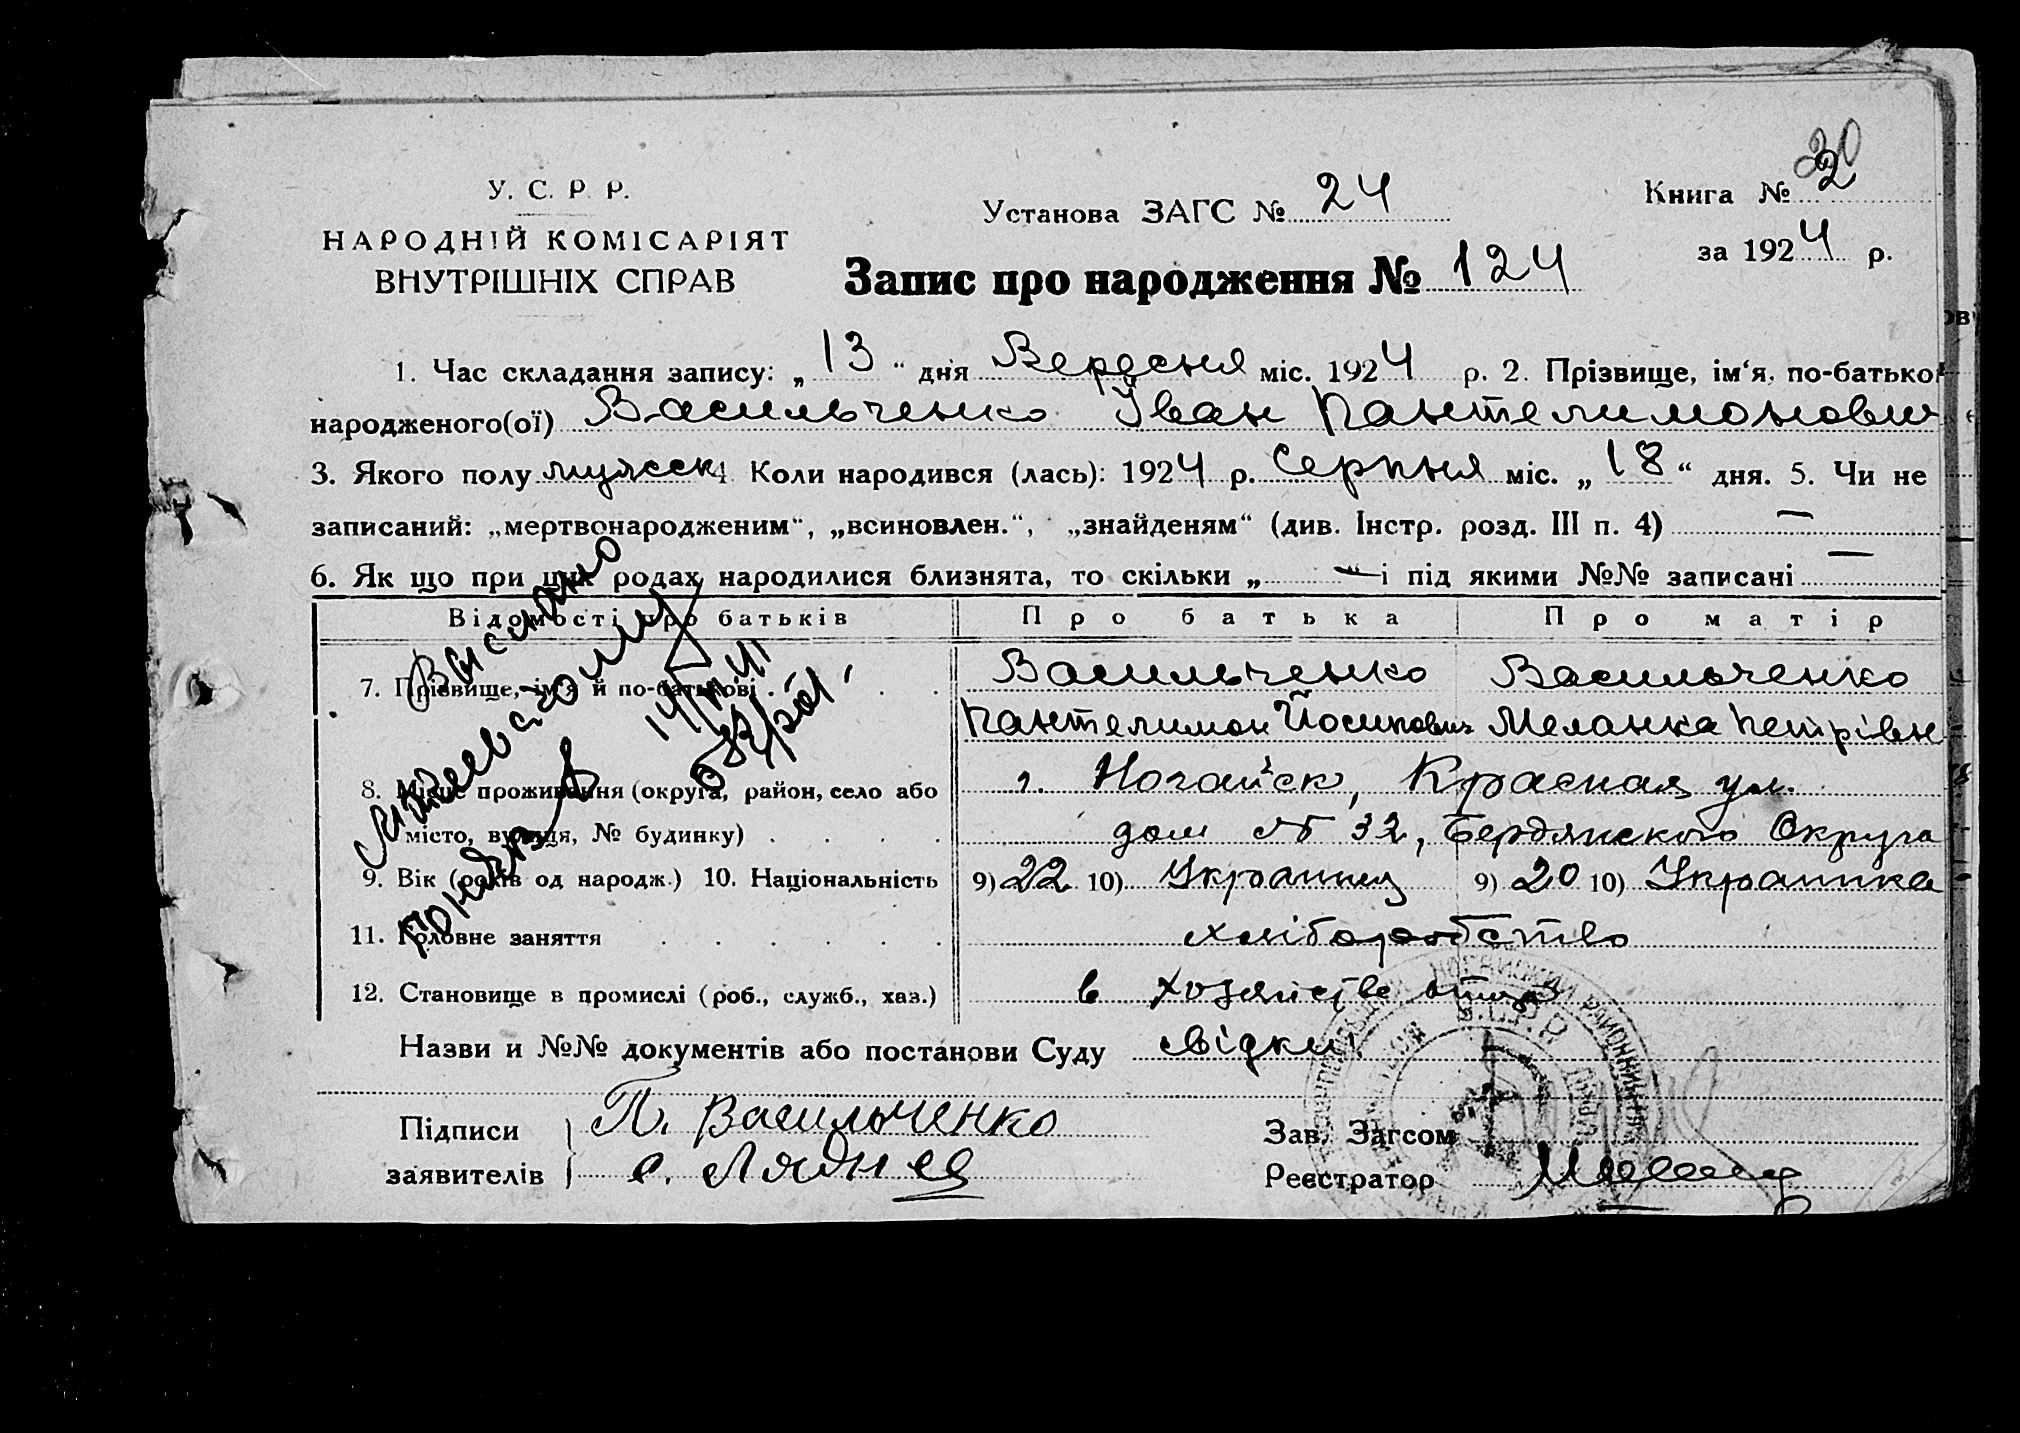 У. С. Р. Р.
НАРОДНІЙ КОМІСАРІЯТ
ВНУТРІШНІХ СПРАВ
Установа ЗАГС № 24
Книга № 2
30
за 1924 р.
Запис про народження № 124
1. Час складання запису: „13“ дня Вересня міс. 1924 р. 2. Прізвище, ім‘я, по-батькові
народженого(ої) Васильченко Іван Пантелимонович
3. Якого полу мужеск 4. Коли народився (лась): 1924 р. Серпня міс. „18“ дня. 5. Чи не
записаний: „мертвонародженим“, „всиновлен.“, „знайденям“ (див. Інстр. розд. III п. 4) —
6. Як що при цих родах народилися близнята, то скільки „—“ і під якими №№ записані —
Відомості про батьків Про батька Про матір
7. Прізвище, ім‘я й по-батькові . . . . Васильченко Васильченко
Пантелимон Йосипович Меланка Петрівн
8. Місце проживання (округа, район, село або г. Ногайск, Красная ул.
місто, вулиця, № будинку) . . . . дом № 32, Бердянского Округа
9. Вік (років од народж.) 10. Національність 9) 22 10) Украинец 9) 20 10) Украинка
11. Головне заняття . . . . . . хліборобство
12. Становище в промислі (роб., служб., хаз.) в хозяйстве отца
Назви и №№ документів або постанови Суду свідки
Підписи заявителів
П. Васильченко
Зав. Загсом
Реєстратор
Выслано
14/